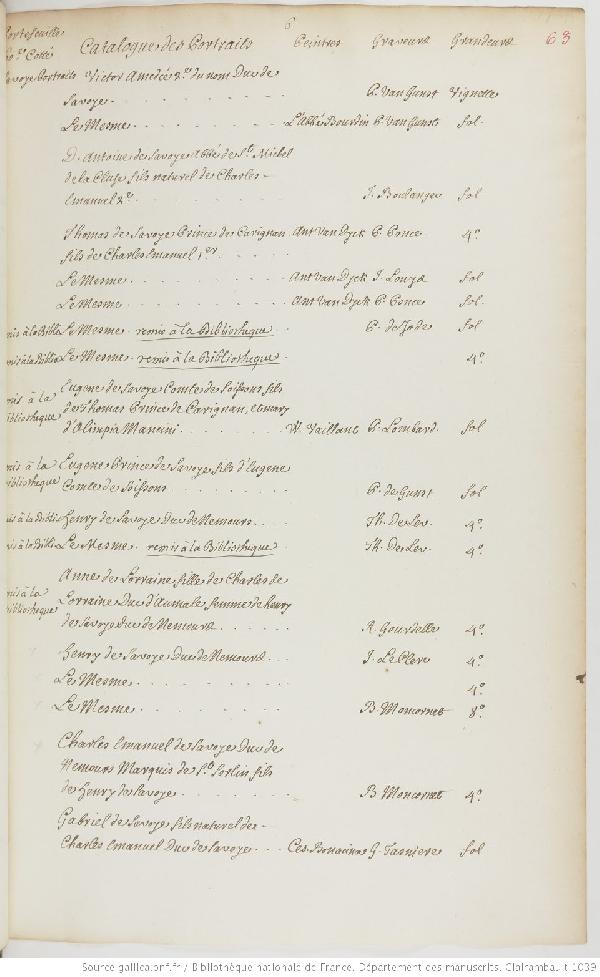 6
Portefeuille
Catalogue des Portraits Peintres Graveurs Grandeurs 63
Savoye Portraits Victor Amedée 2.e du nom Duc de
Savoye P. Van Gunst Vignette
Le Mesme L'abbé Bourdin P. Van Gunst fol.
D. Antoine de Savoye Abbé de S.t Michel
de la Cluse fils naturel de Charles
Emanuel J. Boulanger fol
Thomas de Savoye Prince de Carignan Ant Van Dyck P. Ponce 4.º
fils de Charles Emanuel 1.er
Le Mesme Ant Van Dyck J. Louys fol
Le Mesme Ant Van Dyck P. Ponce fol.
mis à la Biblio Le Mesme remis à la Bibliotheque P. de Jode fol
mis à la Biblio Le Mesme remis à la Bibliotheque 4.º
mis à la Eugene de Savoye Comte de Soissons fils
bibliotheque de Thomas Prince de Carignan, et mary
d'Olimpia Mancini W. Vaillant P. Lombard fol
mis à la Eugene Prince de Savoye fils d'Eugene
bibliotheque Comte de Soissons P. de Gunst fol
mis à la Biblio Henry de Savoye Duc de Nemours Th. De Leu 4.º
mis à la Biblio Le Mesme remis à la Bibliotheque Th. De Leu 4.º
mis à la Anne de Lorraine fille de Charles de
bibliotheque Lorraine Duc d'Aumale femme de henry
de Savoye Duc de Nemours R. Gourdelle 4.º
Henry de Savoye Duc de Nemours J. Le Clerc 4.º
Le Mesme 4.º
Le Mesme B. Moncornet 8.º
Charles Emanuel de Savoye Duc de
Nemours Marquis de S.t Sorlin fils
de Henry de Savoye B. Moncornet 4.º
Gabriel de Savoye fils naturel de
Charles Emanuel Duc de Savoye G. Tasniere fol
Source gallica.bnf.fr / Bibliothèque nationale de France. Département des manuscrits. Clairambault 1039